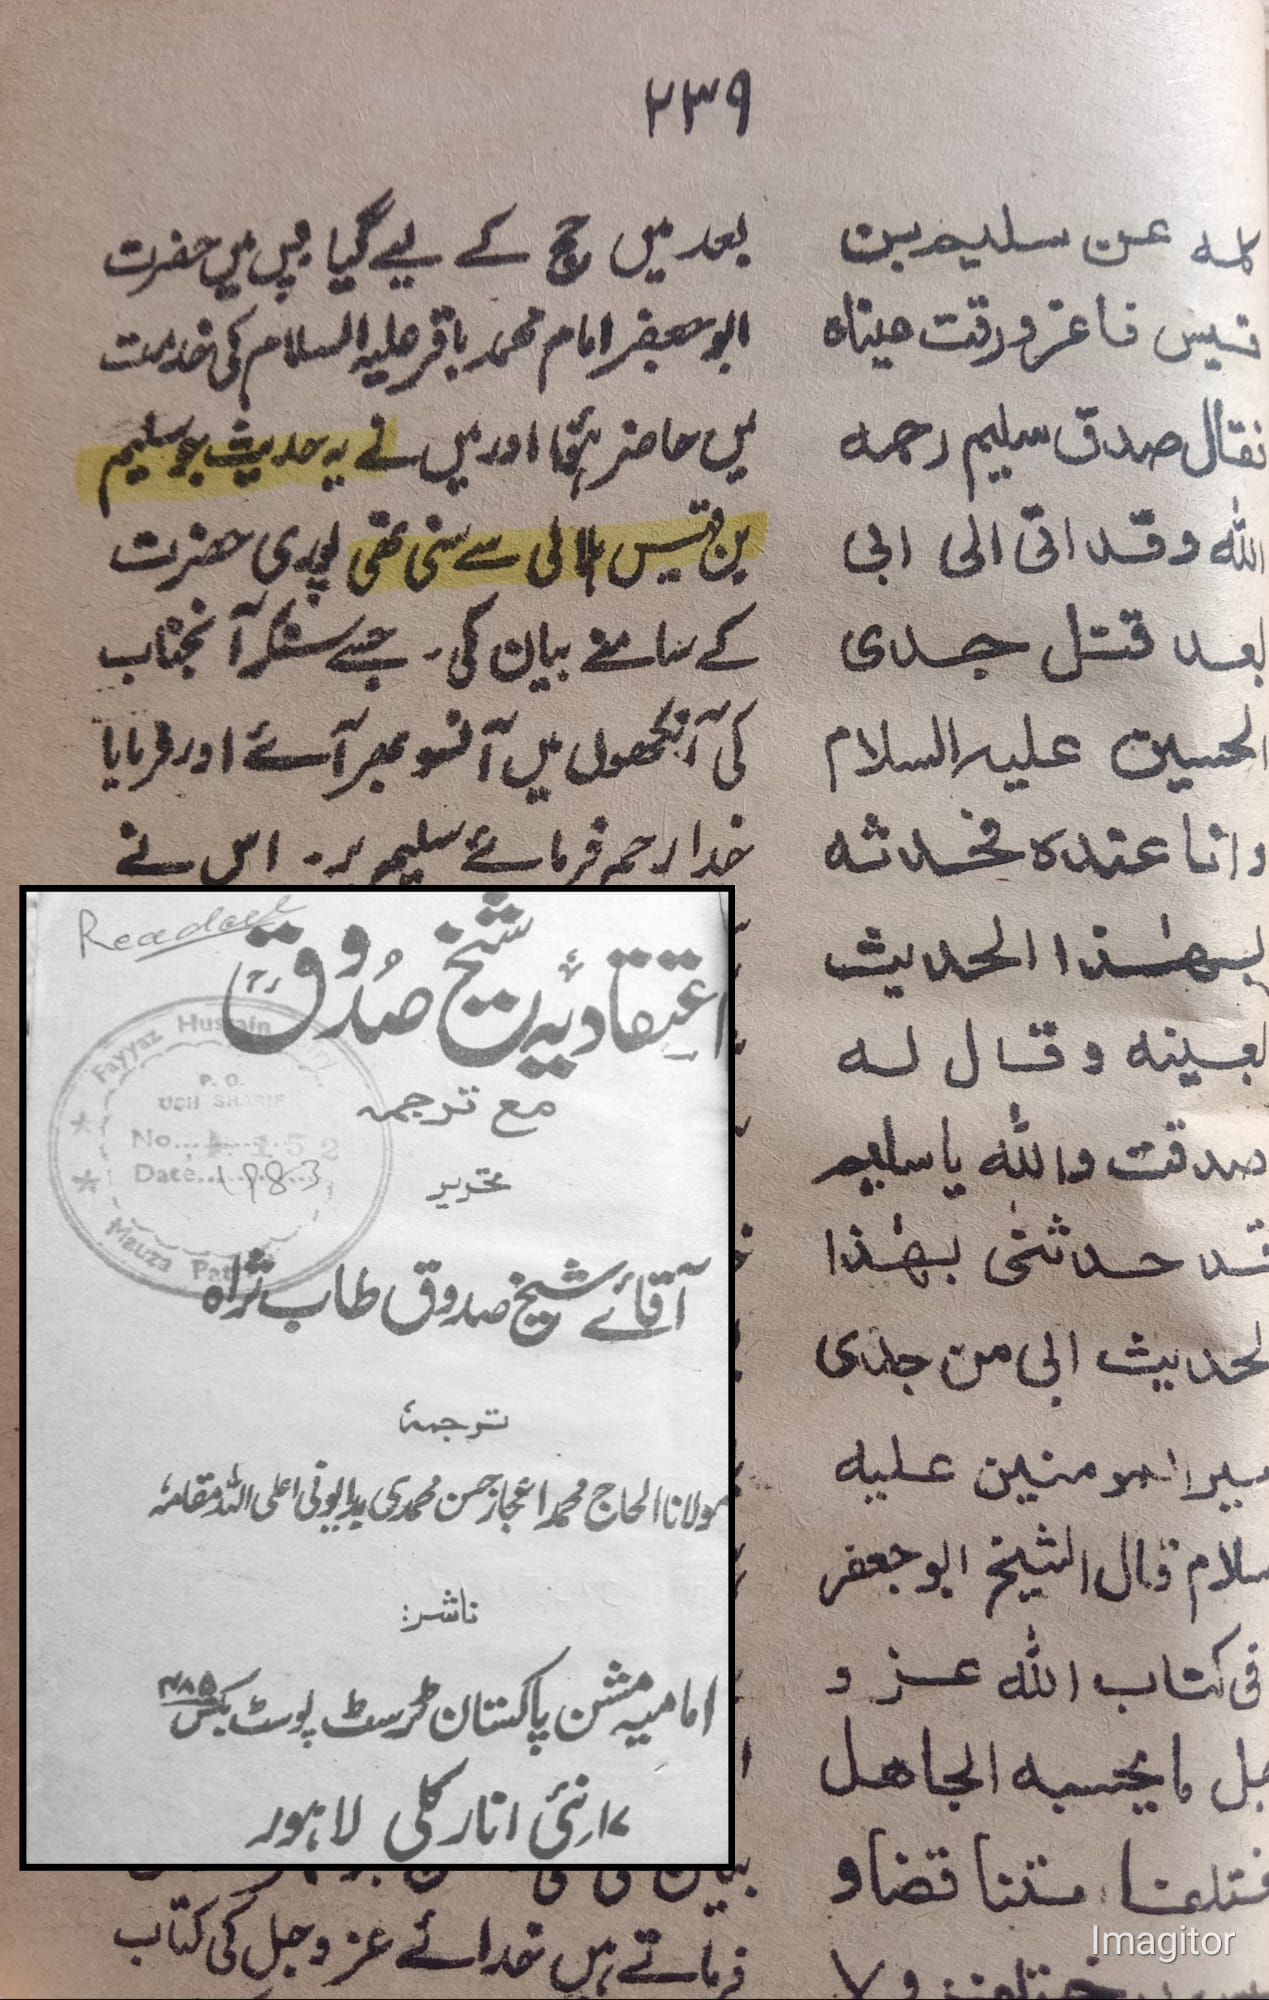 ۲۳۹
کله عن سلیم بن
قیس فاغرورقت عیناه
فقال صدق سلیم رحمه
الله وقد اتی الی ابی
بعد قتل جدی
الحسین علیه السلام
وانا عنده فحدثه
بهٰذا الحدیث
بعینه وقال له
صدقت والله یا سلیم
قد حدثنی بهٰذا
الحدیث ابی من جدی
امیرالمومنین علیه
السلام قال الشیخ ابو جعفر
فی کتاب الله عز و
جل ما یحسبه الجاهل
مختلفا متناقضا و
بعد میں حج کے لیے گیا پس میں حضرت
ابو جعفر امام محمد باقر علیہ السلام کی خدمت
میں حاضر ہُوا اور میں نے یہ حدیث جو سلیم
بن قیس ہلالی سے سنی تھی پوری حضرت
کے سامنے بیان کی۔ جسے سنکر آنجناب
کی آنکھوں میں آنسو بھر آئے اور فرمایا
خدا رحم فرمائے سلیم پر۔ اس نے
فرماتے ہیں خدائے عز وجل کی کتاب
اعتقادیہ شیخ صدوق رح
مع ترجمہ
تحریر
آقائے شیخ صدوق طاب ثراہ
ترجمۂ
مولانا الحاج محمد اعجاز حسن محمدی بدایونی اعلی اللہ مقامہٗ
ناشر:
امامیہ مشن پاکستان ٹرسٹ پوسٹ بکس ۴۸۵
۱۷ نئی انارکلی لاہور
Fayyaz Hussain
P. O.
UCH SHARIF
No... 152
Date... 1983
Mauza
Imagitor